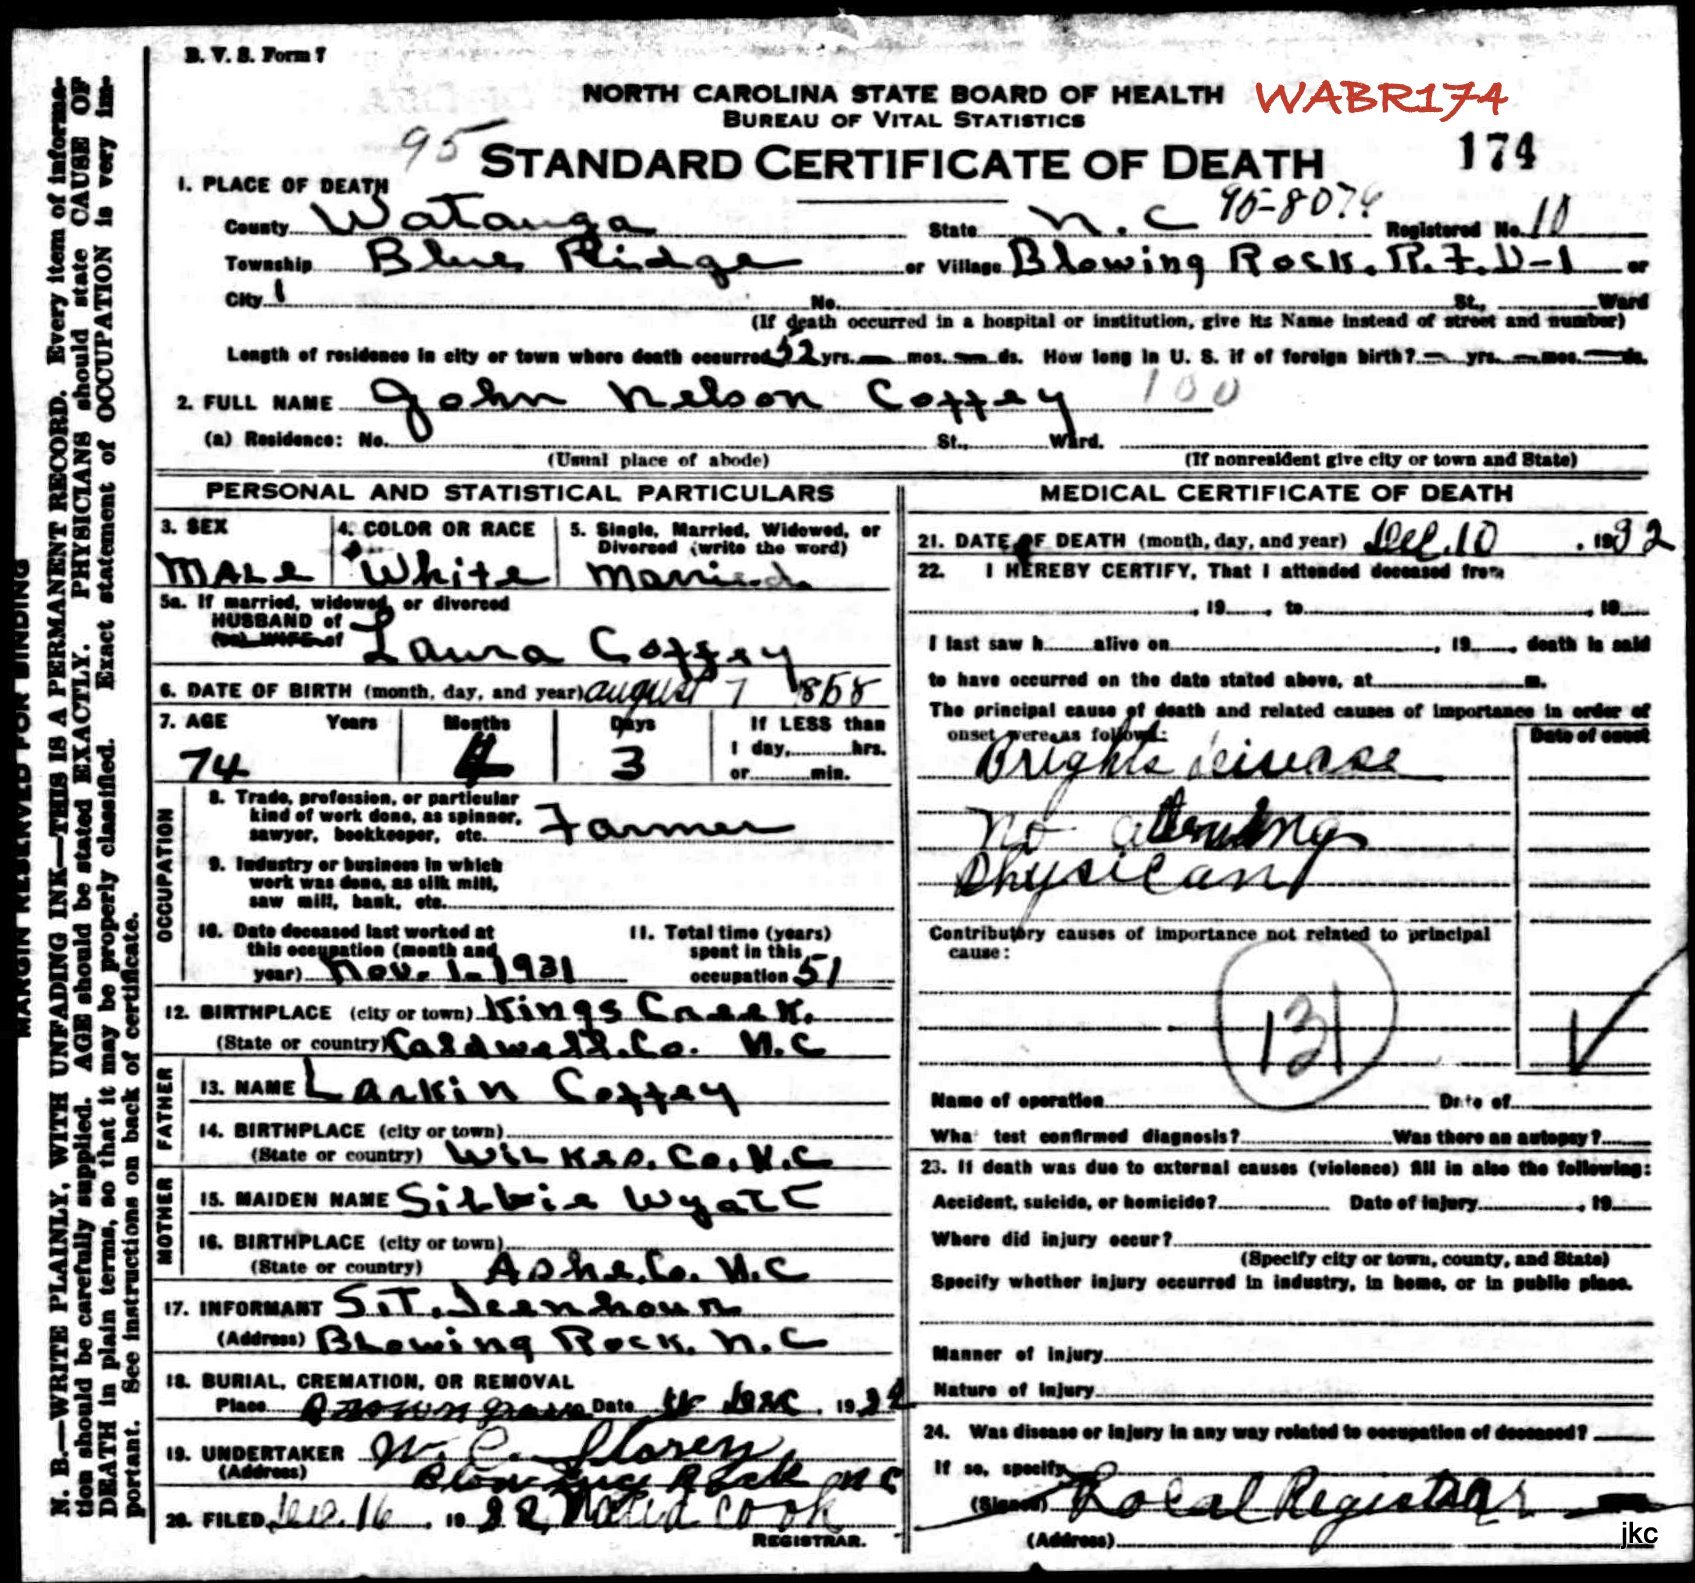 B. V. S. Form 7
NORTH CAROLINA STATE BOARD OF HEALTH WABR174
BUREAU OF VITAL STATISTICS
95 STANDARD CERTIFICATE OF DEATH 174
1. PLACE OF DEATH
County Watauga State N. C 95-80 Registered No. 10
Township Blue Ridge or Village Blowing Rock. R. F. D-1 or
City 1 No. St., Ward
(If death occurred in a hospital or institution, give its Name instead of street and number)
Length of residence in city or town where death occurred 52 yrs. — mos. — ds. How long in U. S. if of foreign birth? — yrs. — mos. — ds.
2. FULL NAME John Nelson Coffey 100
(a) Residence: No. St., Ward.
(Usual place of abode) (If nonresident give city or town and State)
PERSONAL AND STATISTICAL PARTICULARS
3. SEX 4. COLOR OR RACE 5. Single, Married, Widowed, or
Divorced (write the word)
MALe White Married
5a. If married, widowed, or divorced
HUSBAND of
(or) WIFE of Laura Coffey
6. DATE OF BIRTH (month, day, and year) august 7 1858
7. AGE Years Months Days If LESS than
1 day, hrs.
or min.
74 4 3
OCCUPATION
8. Trade, profession, or particular
kind of work done, as spinner,
sawyer, bookkeeper, etc. Farmer
9. Industry or business in which
work was done, as silk mill,
saw mill, bank, etc.
10. Date deceased last worked at
this occupation (month and
year) Nov. 1. 1931
11. Total time (years)
spent in this
occupation 51
12. BIRTHPLACE (city or town) Kings Creek.
(State or country) Caldwell. Co. N. C
FATHER
13. NAME Larkin Coffey
14. BIRTHPLACE (city or town)
(State or country) Wilkes. Co. N. C
MOTHER
15. MAIDEN NAME Silbie Wyatt
16. BIRTHPLACE (city or town)
(State or country) Ashe. Co. N. C
17. INFORMANT S. T. Icenhour
(Address) Blowing Rock. N. C
18. BURIAL, CREMATION, OR REMOVAL
Place Date Dec. 1932
19. UNDERTAKER W. C.
(Address) Blowing Rock N C
20. FILED Dec. 16, 1932, Cook
REGISTRAR.
MEDICAL CERTIFICATE OF DEATH
21. DATE OF DEATH (month, day, and year) Dec. 10. 1932
22. I HEREBY CERTIFY, That I attended deceased from
, 19 , to , 19
I last saw h alive on , 19 , death is said
to have occurred on the date stated above, at m.
The principal cause of death and related causes of importance in order of
onset were as follows: Date of onset
Brights disease
No attending
Physician
Contributory causes of importance not related to principal
cause:
131
Name of operation Date of
What test confirmed diagnosis? Was there an autopsy?
23. If death was due to external causes (violence) fill in also the following:
Accident, suicide, or homicide? Date of injury , 19
Where did injury occur?
(Specify city or town, county, and State)
Specify whether injury occurred in industry, in home, or in public place.
Manner of injury
Nature of injury
24. Was disease or injury in any way related to occupation of deceased?
If so, specify
(Signed) Local Registrar
(Address)
jkc
MARGIN RESERVED FOR BINDING
N. B.—WRITE PLAINLY, WITH UNFADING INK—THIS IS A PERMANENT RECORD. Every item of informa-
tion should be carefully supplied. AGE should be stated EXACTLY. PHYSICIANS should state CAUSE OF
DEATH in plain terms, so that it may be properly classified. Exact statement of OCCUPATION is very im-
portant. See instructions on back of certificate.